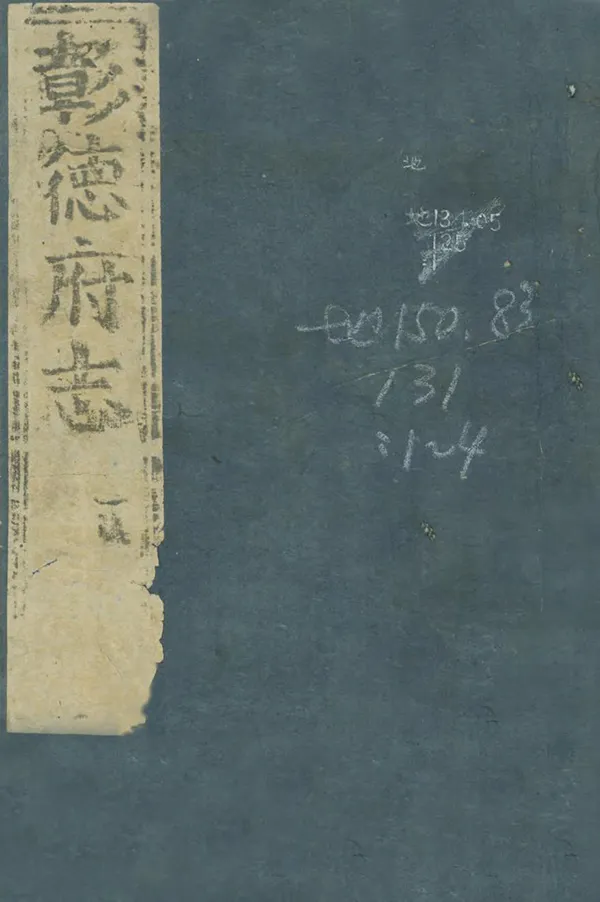 彰德府志
一
地
地134.05
125
:1
地150.83
131
:1~4